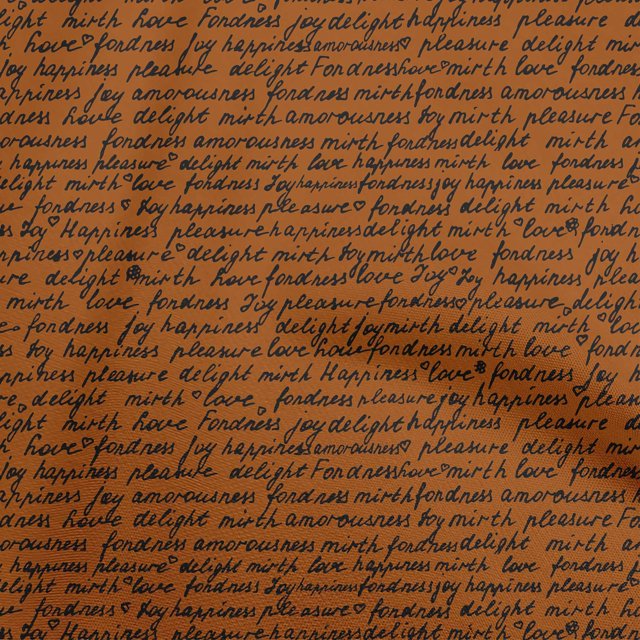 light mirth Love Fondness joy delight happiness pleasure
Love fondness Joy happiness amorousness pleasure delight
joy happiness pleasure delight Fondness Love mirth love fondness
happiness Joy amorousness fondness mirth fondness amorousness
Love delight mirth amorousness Joy mirth pleasure
amorousness fondness amorousness mirth fondness delight mirth
happiness pleasure delight mirth love happiness mirth love fondness
delight mirth love fondness Joy happiness fondness joy happiness pleasure
fondness Joy happiness pleasure fondness delight mirth
Joy Happiness pleasure happiness delight mirth love fondn
happiness pleasure delight mirth Joy mirth love fondness joy
delight mirth Love fondness love Joy Joy happiness
mirth love fondness Joy pleasure fondness pleasure delight
fondness joy happiness delight joy mirth delight mirth
Joy happiness pleasure love Love fondness mirth love fond
happiness pleasure delight mirth Happiness love fondness Joy
delight mirth love fondness pleasure joy happiness pleasu
light mirth Love Fondness joy delight happiness pleasure
Love fondness Joy happiness amorousness pleasure delight
Joy happiness pleasure delight Fondness Love mirth love fondness
happiness Joy amorousness fondness mirth fondness amorousness
Love delight mirth amorousness Joy mirth pleasure
amorousness fondness amorousness mirth fondness delight mirth
happiness pleasure delight mirth love happiness mirth love fondness
delight mirth love fondness Joy happiness fondness joy happiness pleasure
fondness Joy happiness pleasure fondness delight mirth
Joy Happiness pleasure happiness delight mirth love